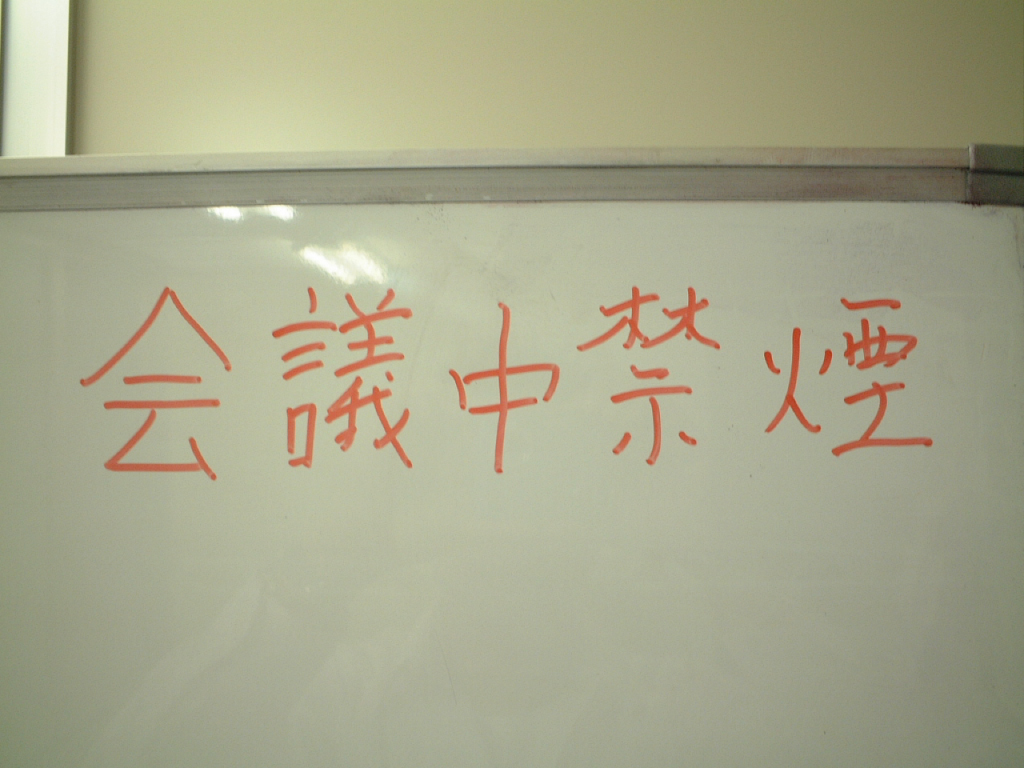 会議中禁煙